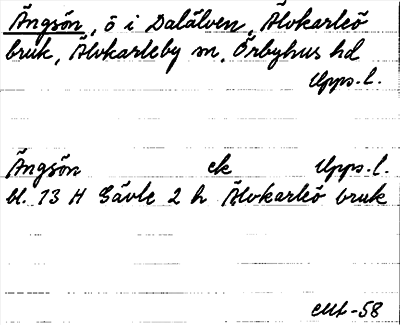 Ängsön, ö i Dalälven, Älvkarleö
bruk, Älvkarleby sn, Örbyhus hd
Upps.l.
Ängsön ek Upps.l.
bl. 13 H Gävle 2 h Älvkarleö bruk
-58